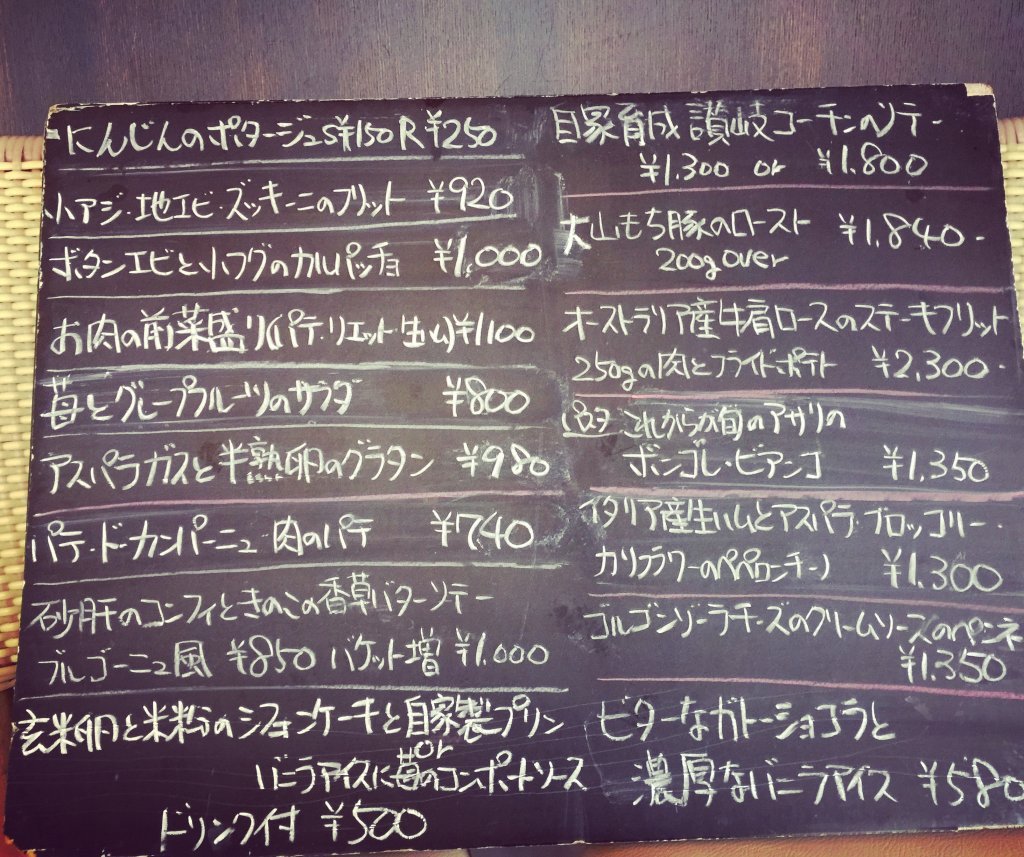 にんじんのポタージュ S¥150 R¥250
小アジ・地エビ・ズッキーニのフリット ¥920
ボタンエビと小フグのカルパッチョ ¥1,000
お肉の前菜盛り(パテ・リエット・生ハム)¥1100
苺とグレープフルーツのサラダ ¥800
アスパラガスと半熟卵のグラタン ¥980
パテ・ド・カンパーニュ 肉のパテ ¥740
砂肝のコンフィときのこの香草バターソテー
ブルゴーニュ風 ¥850 バケット増 ¥1.000
玄米卵と米粉のシフォンケーキと自家製プリン
or
バニラアイスに苺のコンポートソース
ドリンク付 ¥500
自家育成 讃岐コーチンのソテー
¥1.300 or ¥1.800
大山もち豚のロースト ¥1,840.
200g over
オーストラリア産牛肩ロースのステーキフリット
250gの肉とフライドポテト ¥2,300.
これからが旬のアサリの
ボンゴレ・ビアンコ ¥1,350
イタリア産生ハムとアスパラ・ブロッコリー・
カリフラワーのペペロンチーノ ¥1.300
ゴルゴンゾーラチーズのクリームソースのペンネ
¥1.350
ビターなガトーショコラと
濃厚なバニラアイス ¥580